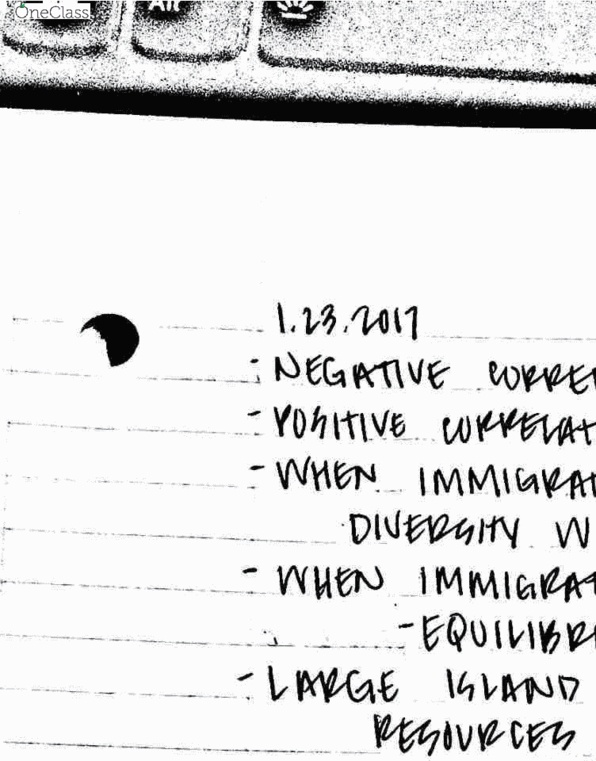 OneClass
Alt
1.23.2017
- NEGATIVE CORREL
- POSITIVE CORRELAT
- WHEN IMMIGRAT
DIVERSITY W
- WHEN IMMIGRAT
- EQUILIBR
- LARGE ISLAND
RESOURCES